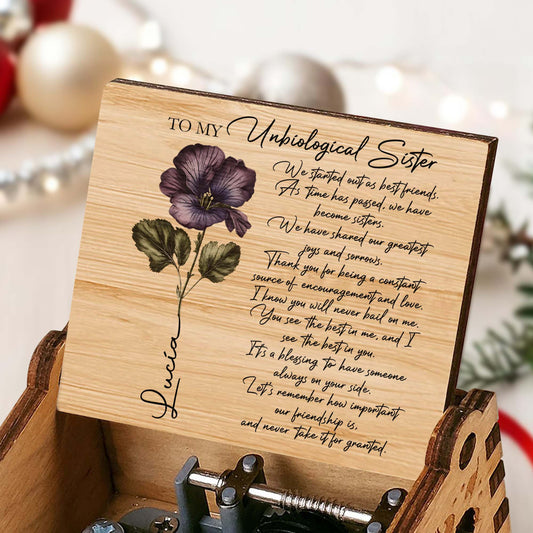 TO MY Unbiological Sister
We started out as best friends.
As time has passed, we have
become sisters.
We have shared our greatest
joys and sorrows.
Thank you for being a constant
source of encouragement and love.
I know you will never bail on me.
You see the best in me, and I
see the best in you.
It's a blessing to have someone
always on your side.
Let's remember how important
our friendship is,
and never take it for granted.
Lucía